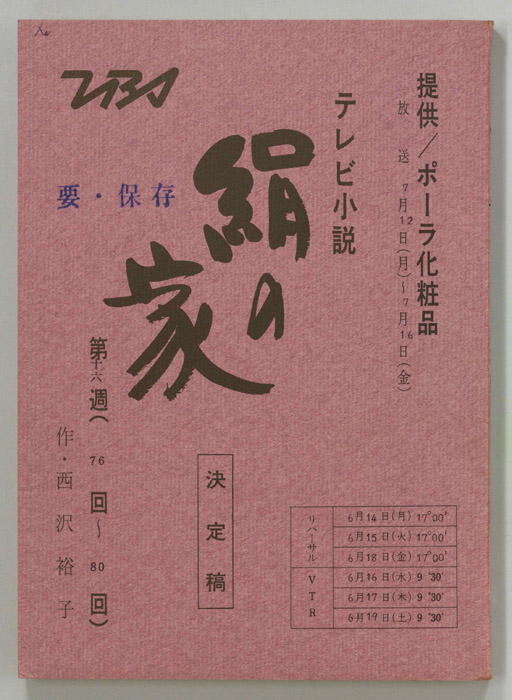 提供/ポーラ化粧品
放送 7月12日(月)~7月16日(金)
テレビ小説
絹の家
TBS
要・保存
第十六週(76回~80回)
作・西沢裕子
決定稿
リハーサル
6月14日(月) 17°00'
6月15日(火) 17°00'
6月18日(金) 17°00'
VTR
6月16日(水) 9°30'
6月17日(木) 9°30'
6月19日(土) 9°30'